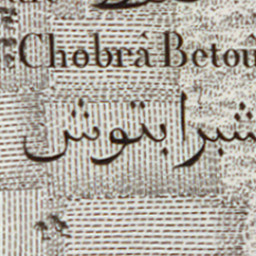 Chobrâ Betoû
شبرا بتوش